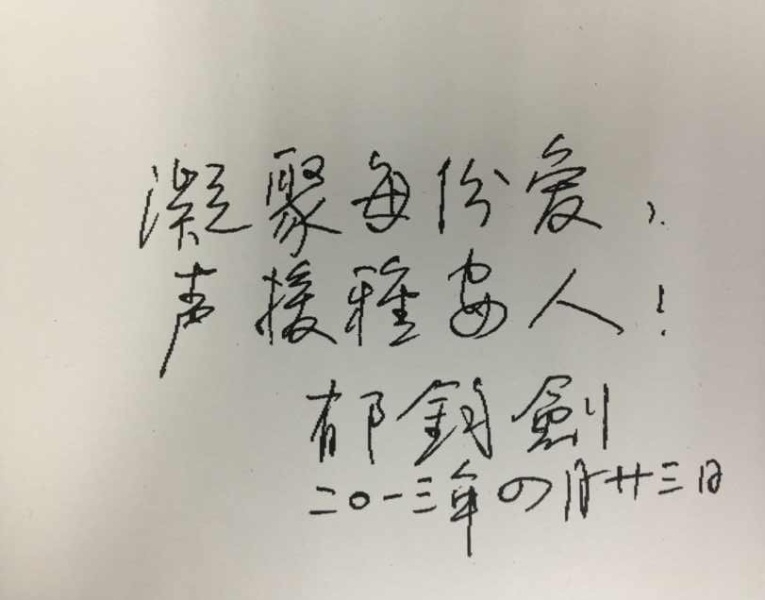 凝聚每份爱，
声援雅安人！
郁钧劍
二〇一三年四月廿三日